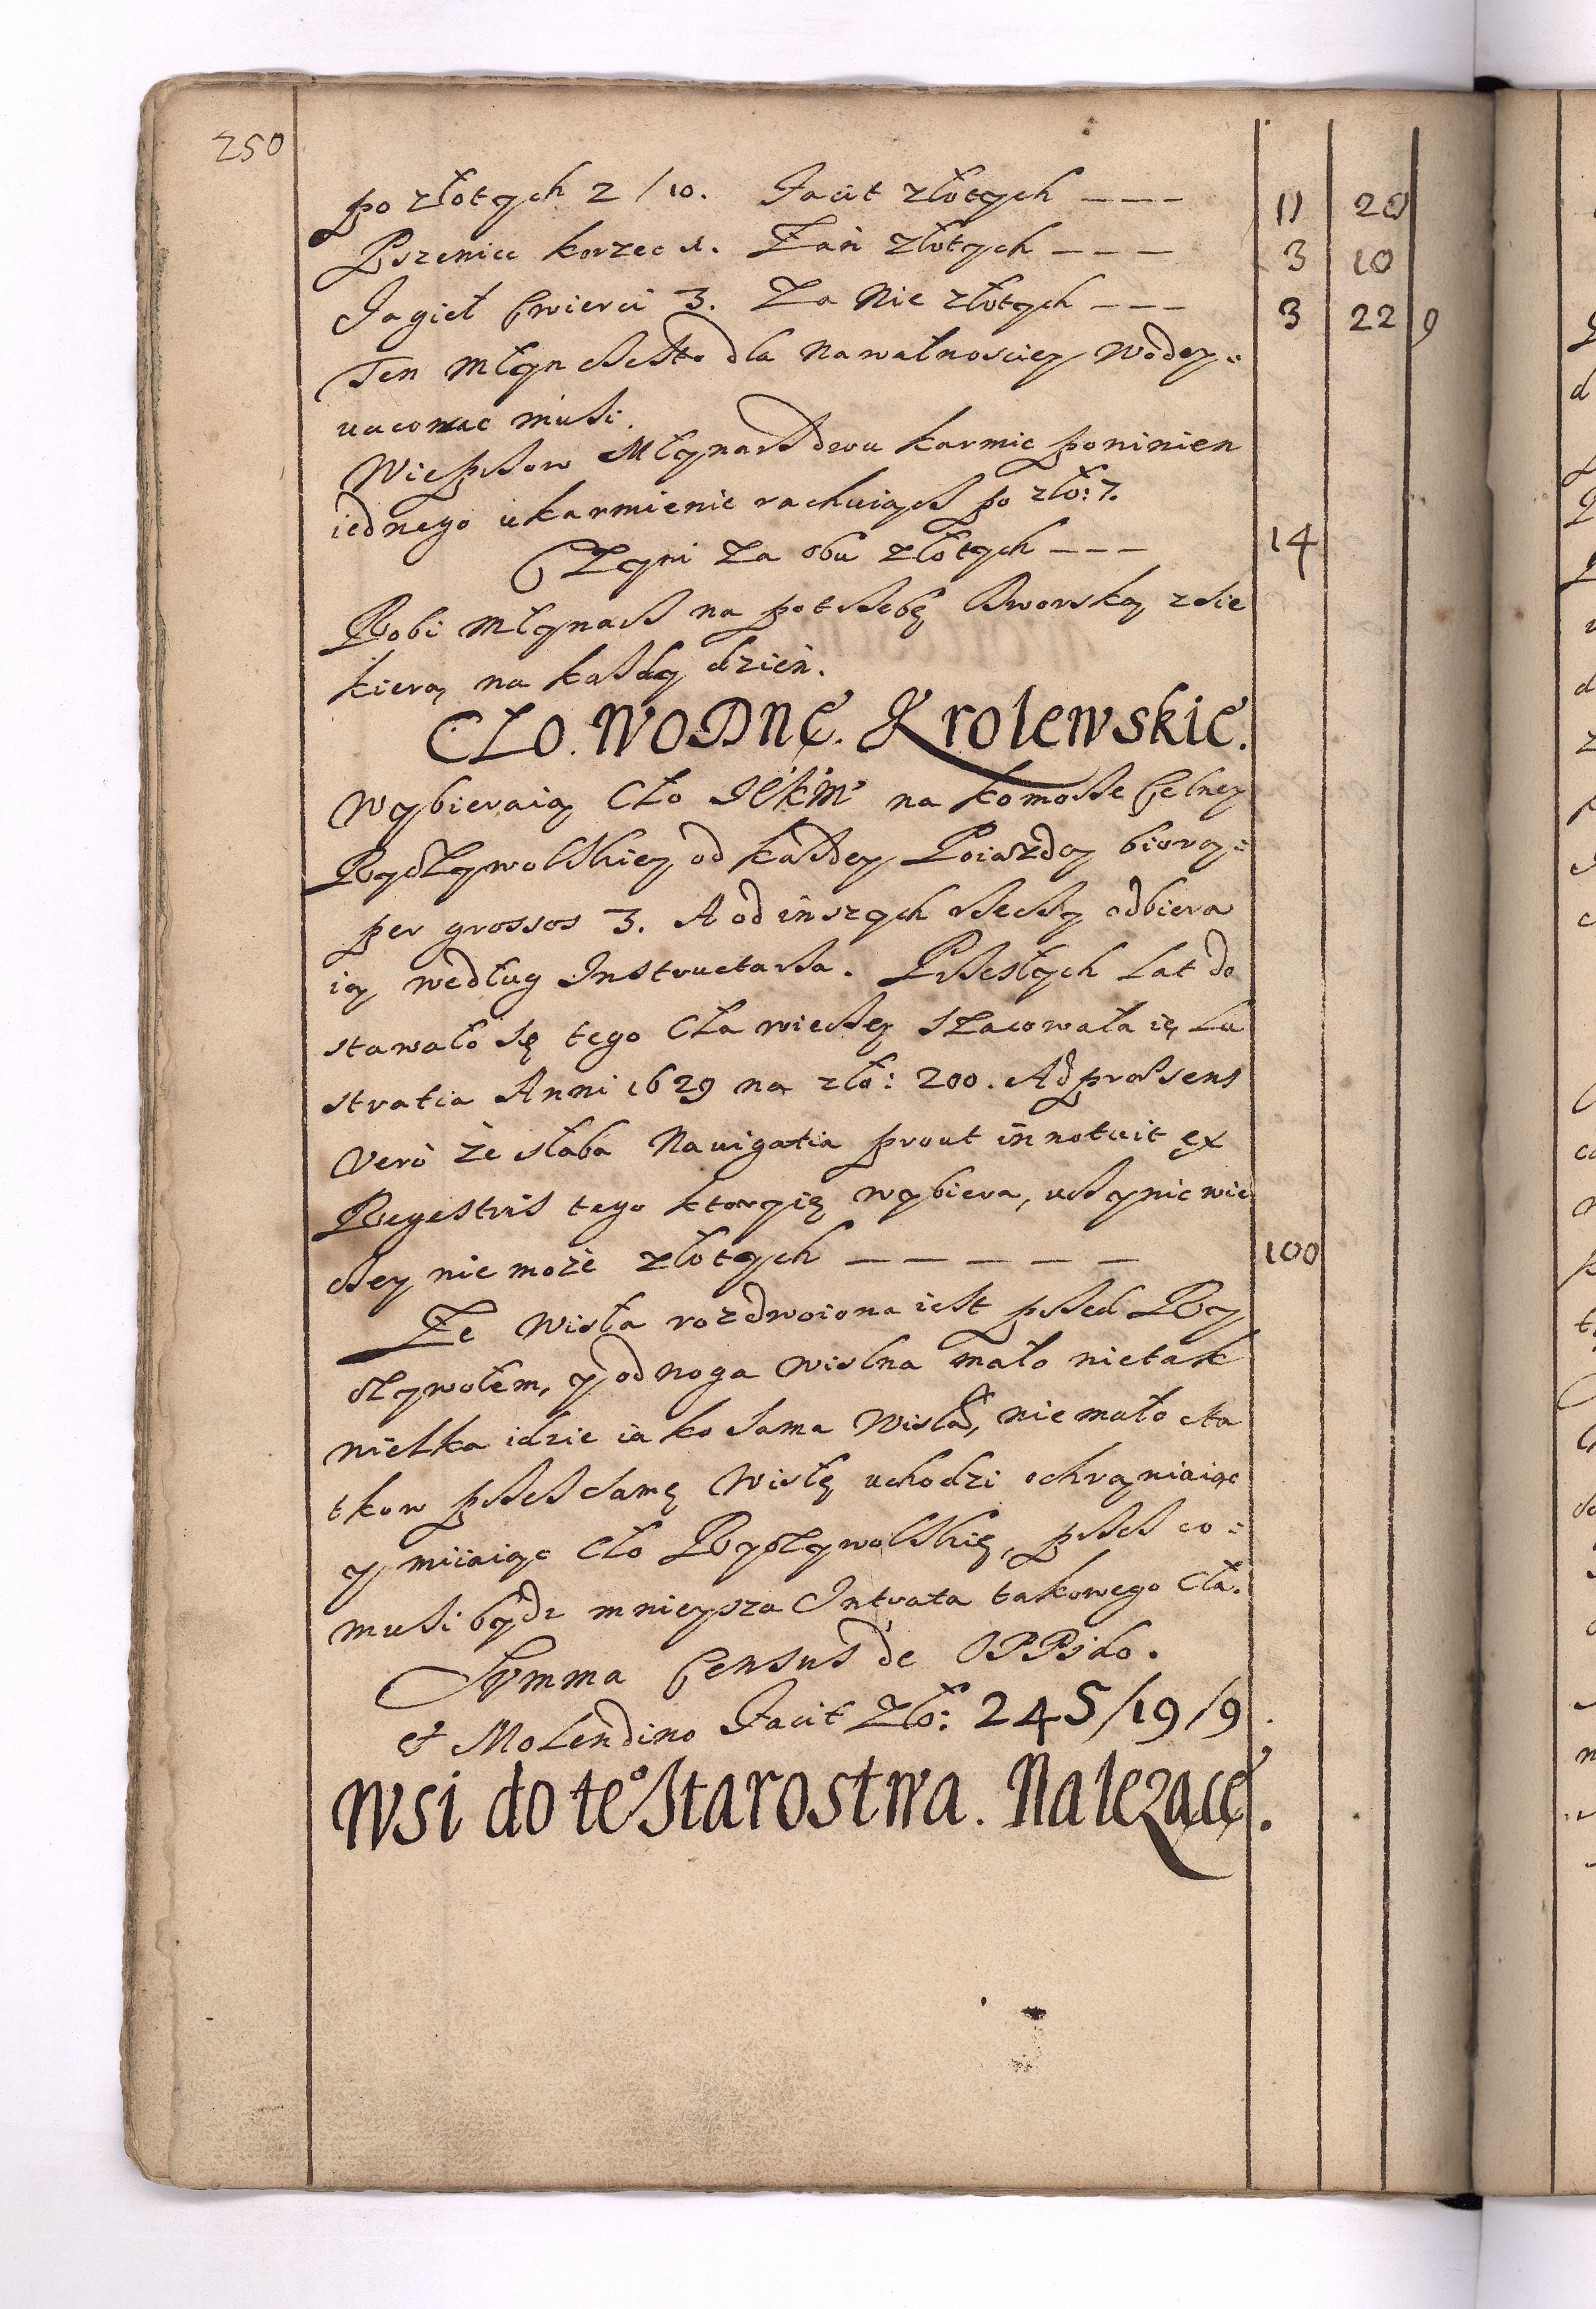 250
po złotych 2/10. Facit złotych --- 11 20
Pszenice korzec 1. Zań złotych --- 3 10
Jagieł Cwierci 3. Za Nie złotych --- 3 22 9
Ten młyn często dla Nawałnosciey wody
musi.
Wieprzow Młynarz dwu karmic powinien
iednego ukarmienie rachuiącz po zło: 7.
Czyni za obu złotych --- 14
Robi młynarz na potrzebę Dworską z sie
kierą na każdy dzień.
CŁO. WODNE. Krolewskie.
Wybieraią Cło JKM na komorze Celney
Ryczywolskiey od każdey Poiazdy biorą
per grossos 3. A od inszych rzeczy odbiera
ią według Instructarza. Przeszłych Lat do
stawało się tego Cła wiecey szacowała ię Lu
stratia Anni 1629 na zło: 200. Ad præsens
Vero że słaba Nauigatia prout innotuit ex
Regestris tego ktory ię wybiera, uczynic wie
cey nie może złotych ----- 100
Że Wisła rozdwoiona iest przed Ry
czywołem, y odnoga Wislna mało nie tak
wielka idzie iako sama Wisła, nie mało sta
tkow przez samę Wisłę uchodzi ochraniaiąc
y miiaiąc Cło Ryczywolskie, przez co
musi bydz mnieysza Intrata takowego Cła.
Summa Census de OPPido.
et Molendino Facit Zło: 245/19/9.
Wsi do te° Starostwa. Należące.